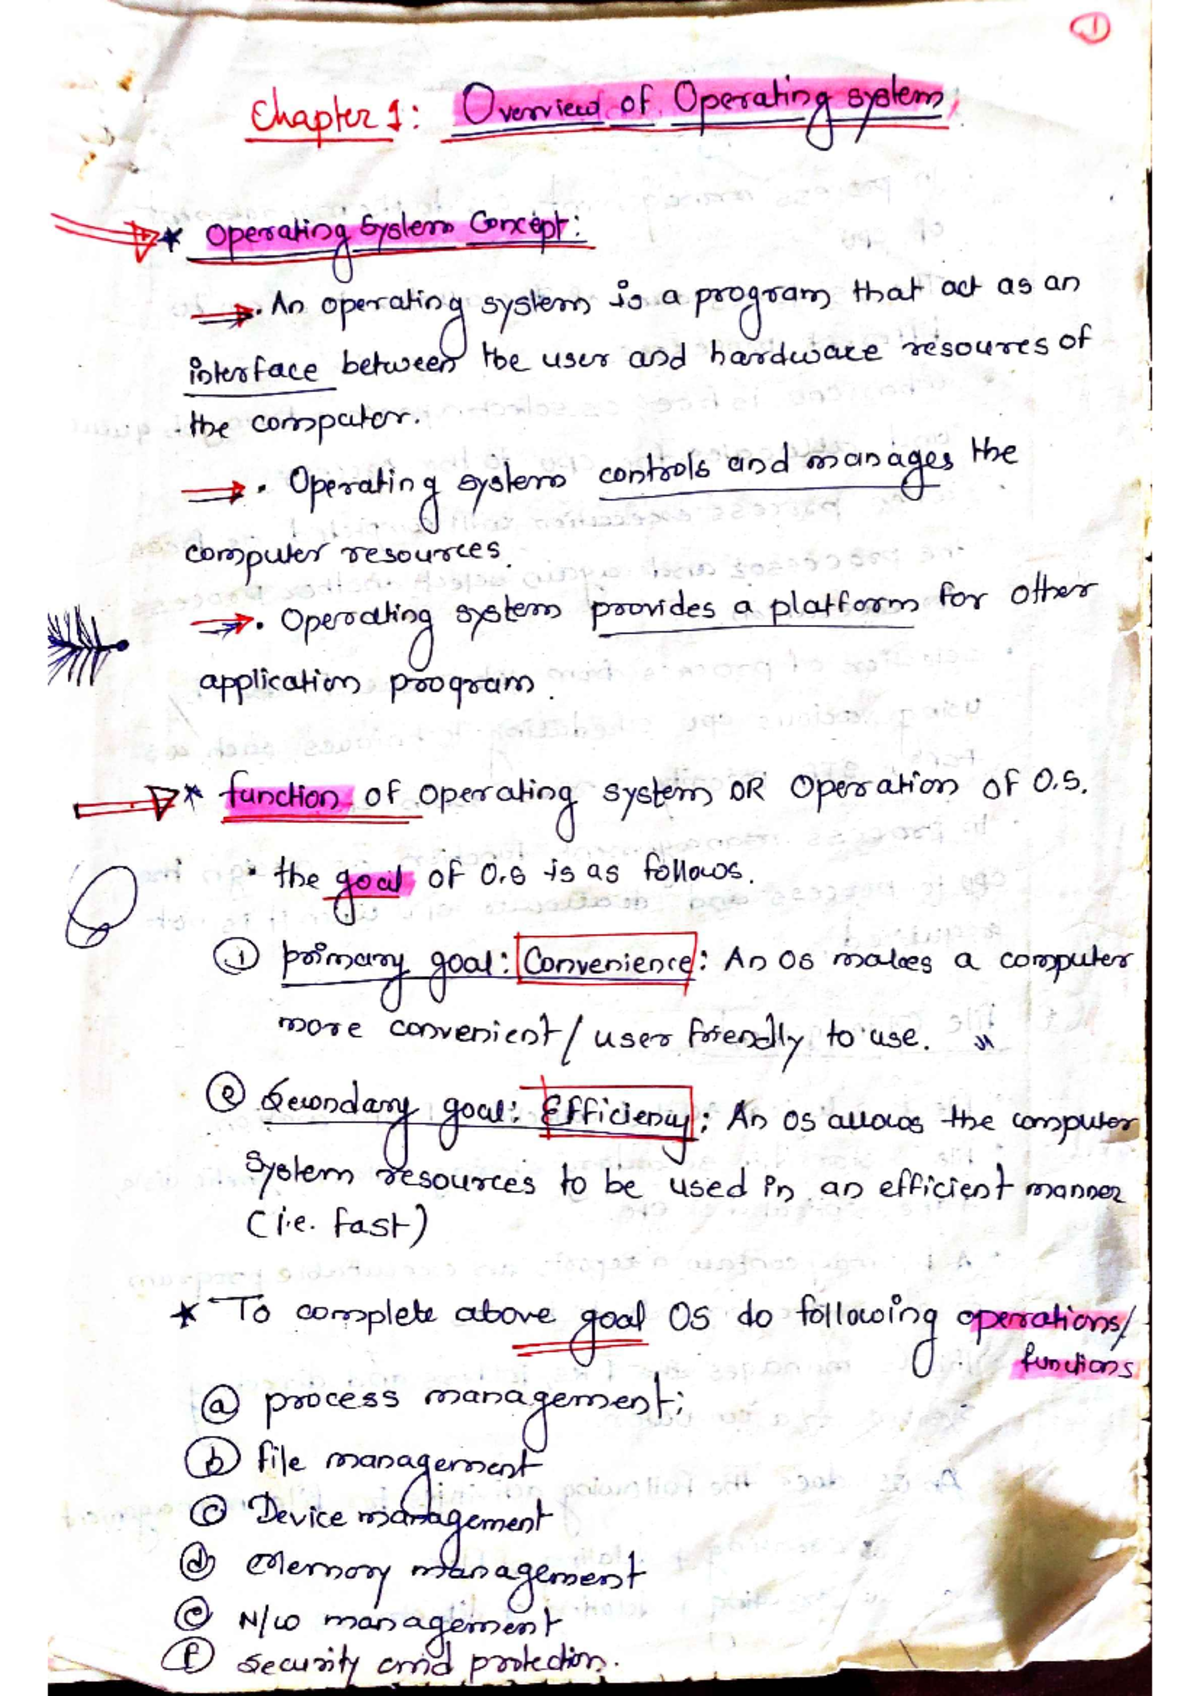 1
Chapter 1: Overview of Operating system
* Operating System Concept:
. An operating system is a program that act as an
interface between the user and hardware resoures of
the computer.
. Operating system controls and manages the
computer resources.
. Operating system provides a platform for other
application program.
* function of operating system OR Operation of O.S.
. the goal of O.S is as follows.
① primary goal: Convenience: An OS makes a computer
more convenient/user friendly to use.
② Secondary goal: Efficiency: An OS allows the computer
System resources to be used in an efficient manner
(i.e. fast)
* To complete above goal OS do following operations/
functions
ⓐ process management;
ⓑ file management
ⓒ Device management
ⓓ Memory management
ⓔ N/W management
ⓕ security and protection.